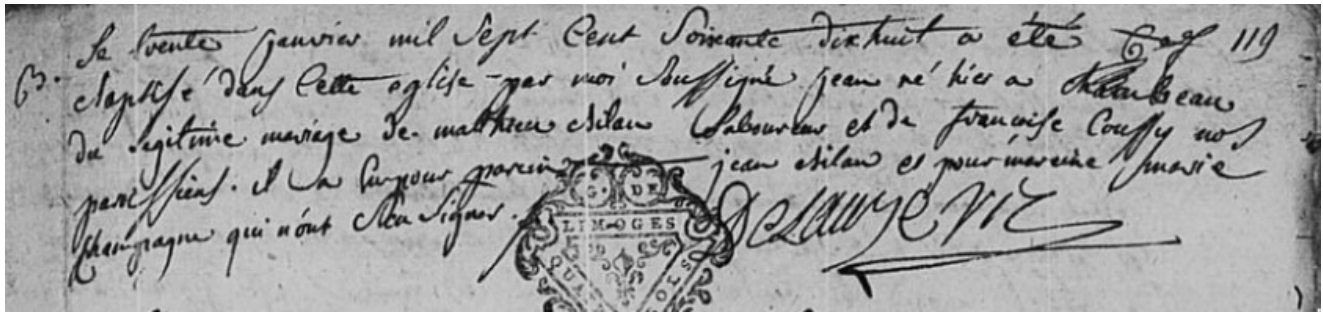 Le trente janvier mil sept cent soixante dixhuit a été 119
B. Baptisé dans cette eglise par moi soussigné jean né hier a Chambeau
du legitime mariage de matthieu laboureur et de francoise Coussy nos
paroissiens. il a eu pour parein jean et pour mareine marie
Champagne qui n'ont sceu signer. Delauze vic
G. DE
LIMOGES
QUA OLS